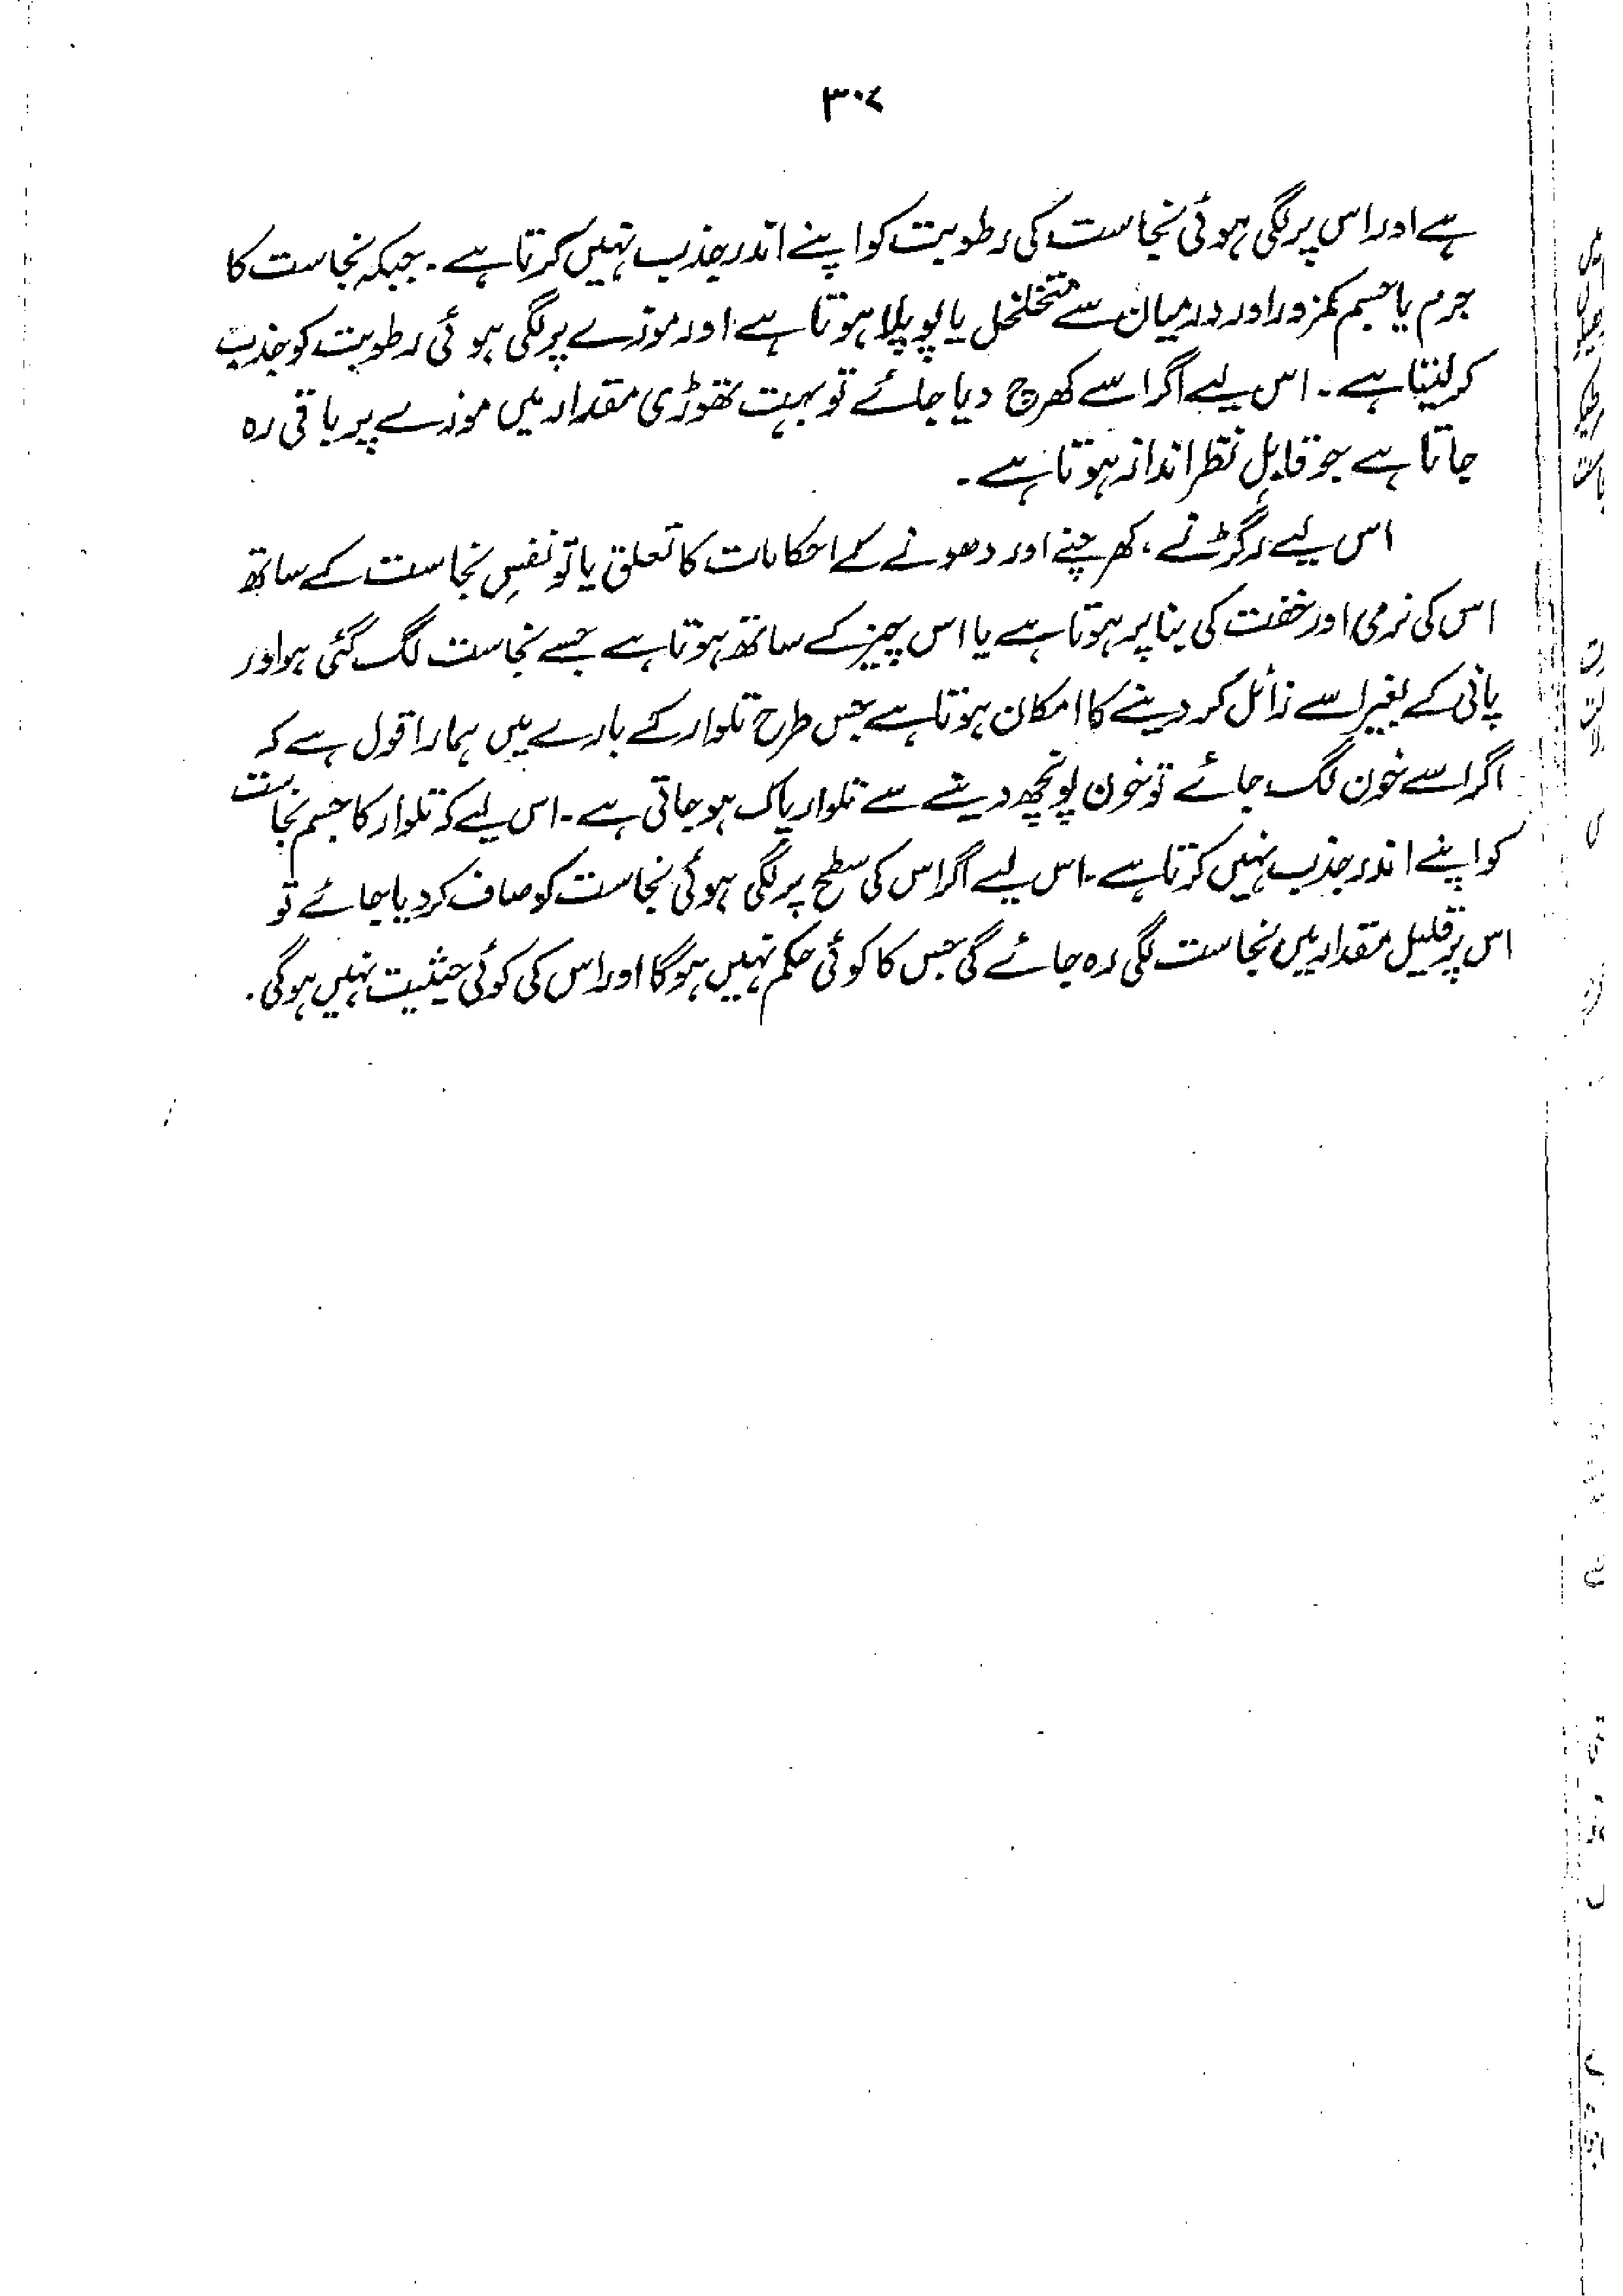 ۳۰۷
ہے اور اس پر لگی ہوئی نجاست کی رطوبت کو اپنے اندر جذب نہیں کرتا ہے۔ جبکہ نجاست کا
جرم یا جسم کمزور اور درمیان سے متخلخل یا پوپلا ہوتا ہے اور موزے پر لگی ہوئی رطوبت کو جذب
کر لیتا ہے۔ اس لیے اگر اسے کھرچ دیا جائے تو بہت تھوڑی مقدار میں موزے پر باقی رہ
جاتا ہے جو قابلِ نظر انداز ہوتا ہے۔
اس لیے رگڑنے، کھرچنے اور دھونے کے احکامات کا تعلق یا تو نفسِ نجاست کے ساتھ
اس کی نرمی اور خفت کی بنا پر ہوتا ہے یا اس چیز کے ساتھ ہوتا ہے جسے نجاست لگ گئی ہو اور
پانی کے بغیر اسے زائل کر دینے کا امکان ہوتا ہے جس طرح تلوار کے بارے میں ہمارا قول ہے کہ
اگر اسے خون لگ جائے تو خون پونچھ دینے سے تلوار پاک ہو جاتی ہے۔ اس لیے کہ تلوار کا جسم نجاست
کو اپنے اندر جذب نہیں کرتا ہے۔ اس لیے اگر اس کی سطح پر لگی ہوئی نجاست کو صاف کر دیا جائے تو
اس پر قلیل مقدار میں نجاست لگی رہ جائے گی جس کا کوئی حکم نہیں ہوگا اور اس کی کوئی حیثیت نہیں ہوگی۔